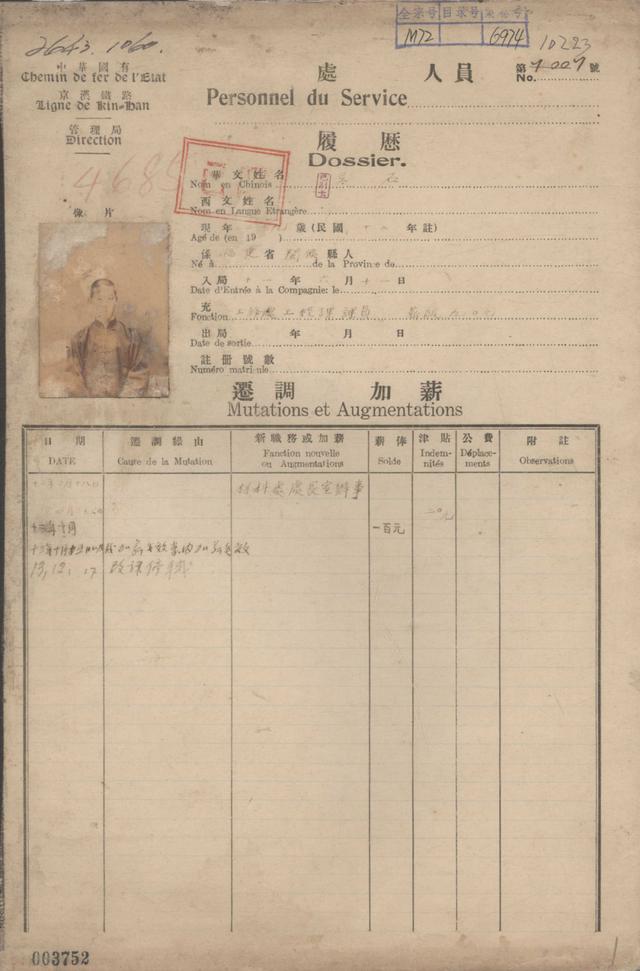 全宗号 目录号 案卷号
M72 6974
2643.1060.
10223
中華國有
Chemin de fer de l'Etat
京漢鐵路
Ligne de Kin-Han
管理局
Direction
處 人員
Personnel du Service
第 號
No. 7007
履歷
Dossier.
468
華文姓名
Nom en Chinois
西文姓名
Nom en Langue Etrangère
像片
現年 歲(民國 年註)
Age de (en 19 )
係 福建 省 縣人
Né à de la Province de
入局 十一 年 月 十一 日
Date d'Entrée à la Compagnie: le
充
Fonction 工務處工程課課員
出局 年 月 日
Date de sortie
註冊號數
Numéro matricule
遷調 加薪
Mutations et Augmentations
日期 遷調緣由 新職務或加薪 薪俸 津貼 公費 附註
DATE Cause de la Mutation Fanction nouvelle ou Augmentations Solde Indemnités Déplacements Observations
材料處處長室辦事
二0元
十三年十月 一百元
13,12,17 改課
003752